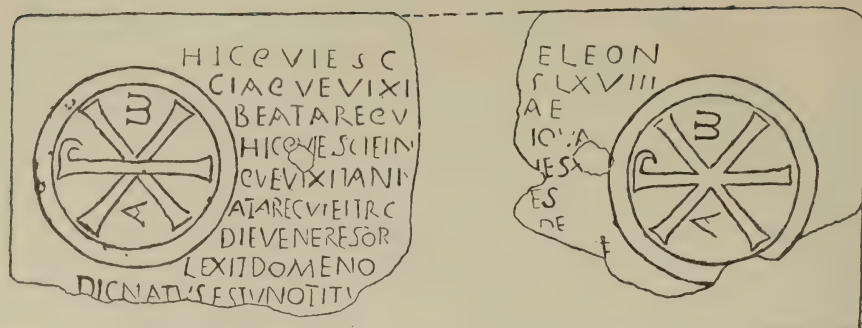 HICQVIESC
CIAQVEVIXI
BEATAREQV
HICQVIESCIEIN
QVEVIXITANI
ATAREQVIEITRC
DIEVENERESOR
LEXITDOMENO
DICNATVSESTVNOTITV
ω
A
ELEON
SLXVIII
AE
IESX
ES
DE
E
ω
A